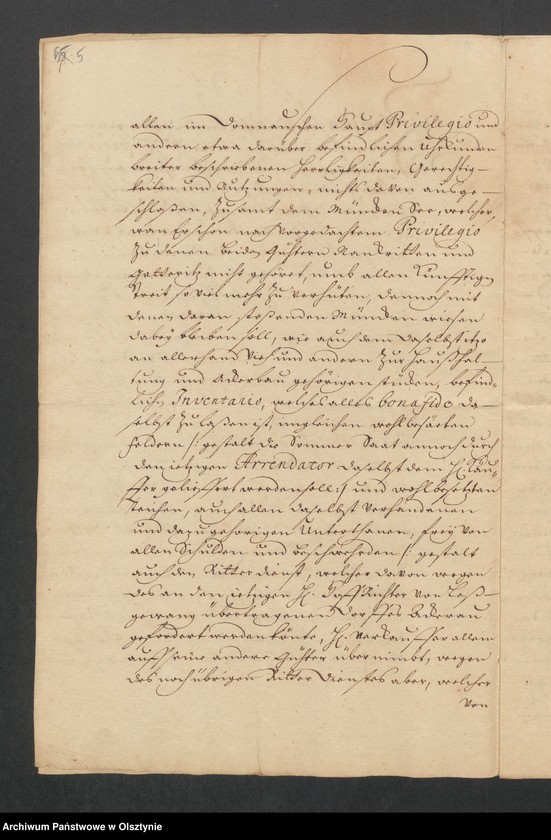 5
allen im Domnauschen Haupt Privilegio und
andern etwa darüber befindlichen Uhrkunden
breiter beschriebenen Herrligkeiten, Gerechtig-
keiten und Nutzungen, nichts davon ausge-
schloßen, zusamt dem Münden See, welcher,
wan Er schon nach vorgedachtem Privilegio
zu denen beiden Gühtern und
nicht gehöret, umb allen künfftigen
Streit so viel mehr zu verhüten, dennoch mit
denen daran stoßenden Münden wiesen
dabey bleiben soll, wie auch dem daselbst itzo
an allerhand Vieh und andern zur Haußhal-
tung und Ackerbau gehörigen stücken, befind-
lichen Inventario, welches alles bona fide da-
selbst zu laßen ist, imgleichen wohl besäeten
Feldern /: gestalt die Sommer Saat annoch durch
den jetzigen Arrendator daselbst dem H. Käu-
ffer geliefert werden soll :/ und wohl besetzten
Teichen, auch allen daselbst verhandenen
und dazu gehörigen Unterthanen, frey von
allen Schulden und beschwehrden /: gestalt
auch den Ritter dienst, welcher davon wegen
des an den jetzigen H. Hoffrichter von
übertragenen Dorffes
gefordert werden könte, H. Verkäuffer allein
auff seine andere Gühter übernimbt, wegen
des noch übrigen Ritter Dienstes aber, welcher
von
Archiwum Państwowe w Olsztynie